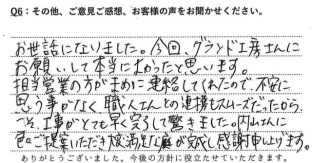 Q6：その他、ご意見ご感想、お客様の声をお聞かせください。
お世話になりました。今回、グランド工房さんに
お願いして本当によかったと思います。
担当営業の方がまめに連絡してくれたので、不安に
思う事がなく職人さんとの連携もスムーズだったから
こそ、工事がとても早く完了して驚きました。内山さんに
色々ご提案いただき大満足な庭が完成し感謝申し上げます。
ありがとうございました。今後の方針に役立たせていただきます。